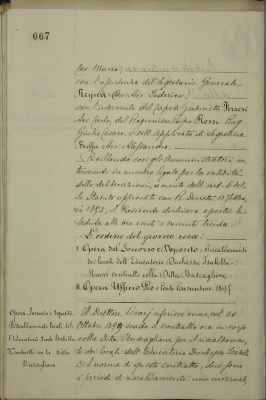 667
per Mario;
con l'assistenza del Segretario Generale
Reyna Cav. Avv. Federico;
con l'intervento del Capo di Gabinetto Ferreri
Avv. Carlo, del Ragioniere Capo Rossi Rag.
Giulio Cesare, e dell'Applicato di Segreteria
Buffa Avv. Alessandro.
Risultando con gli Amministratori in-
tervenuti in numero legale per la validità
delle deliberazioni, a mente dell'art. 6 del-
lo Statuto approvato con R. Decreto
1894, il Presidente dichiara aperta la
seduta alle ore venti e minuti trenta.
L'ordine del giorno reca:
I Opera del Soccorso e Deposito. Riscaldamento
dei locali dell'Educatorio Duchessa Isabella.
Nuovo contratto colla Ditta Buscaglione.
II Opera Ufficio Pio. Conto Consuntivo 1897
Opera Soccorso e Deposito.
Riscaldamento locali del-
l'Educatorio Duch. Isabella.
Contratto con la Ditta
Buscaglione
Il Direttore riferisce come, col 31
Ottobre 1899 scada il contratto ora in corso
colla Ditta Buscaglione, per il riscaldamen-
to dei locali dell'Educatorio Duchessa Isabella.
A norma di questo contratto, due sono
i periodi di riscaldamento: uno invernale,